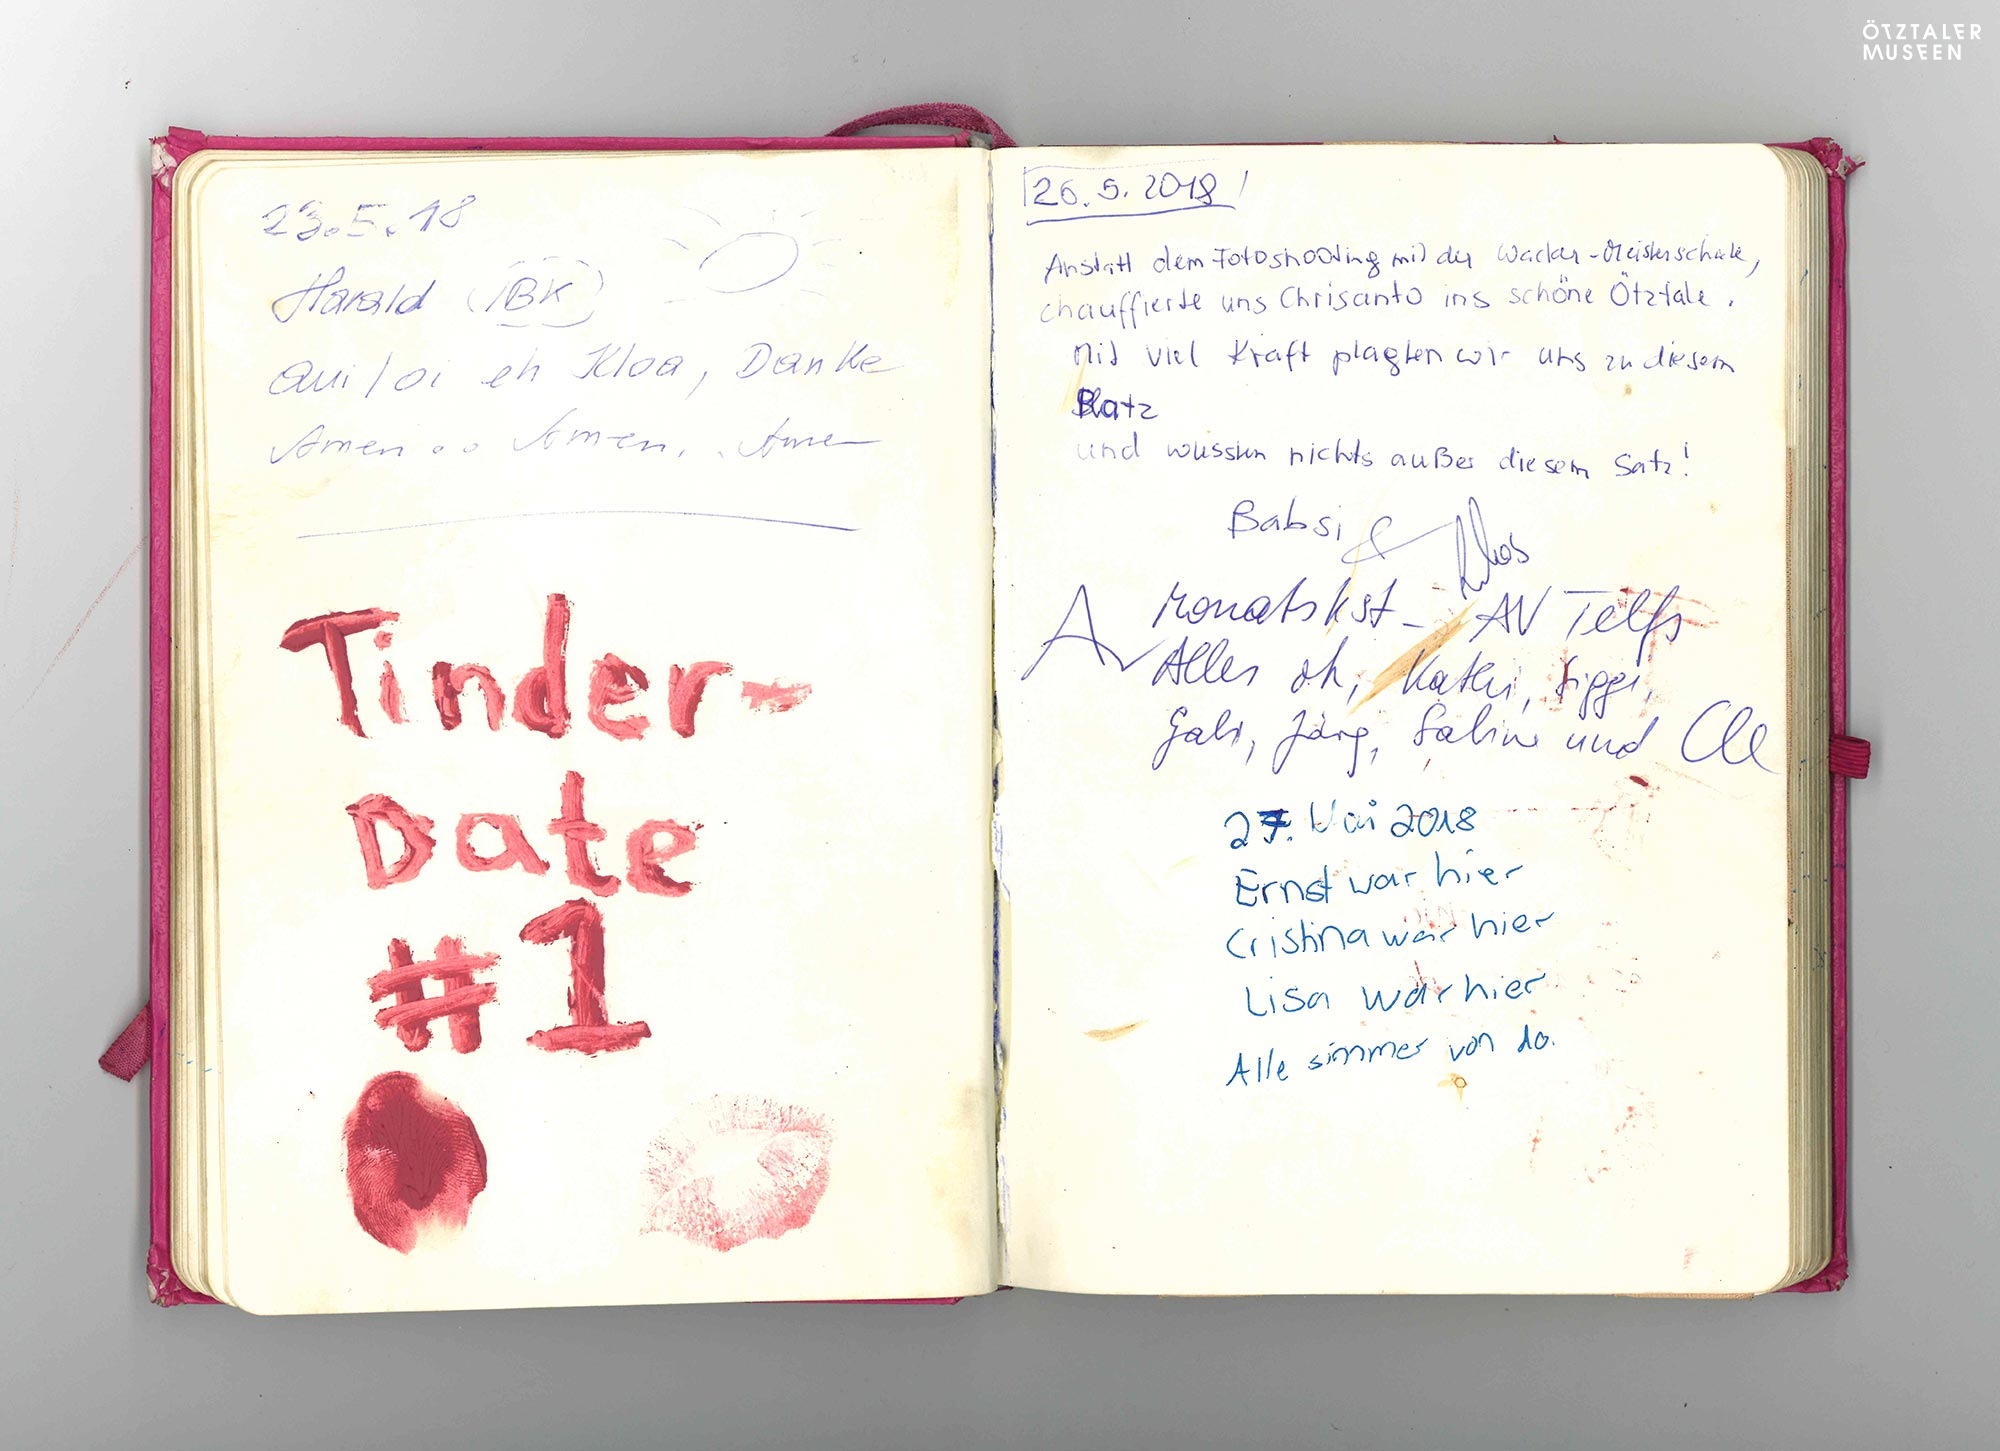 ÖTZTALER
MUSEEN
23.5.18
Harald (IBK)
aui / oi eh Kloa, Danke
Amen .. Amen. . Amen
Tinder-
Date
#1
26.5.2018
Anstatt dem Fotoshooting mit der Wacker-Meisterschale,
chauffierte uns Chrisanto ins schöne Ötztale.
Mit viel Kraft plagten wir uns zu diesem
Platz
und wussten nichts außer diesem Satz!
Babsi &
AV Telfs
Alles ok, Kathi, Siggi,
Gabi, Jörg, Sabine und
27. Mai 2018
Ernst war hier
Cristina war hier
Lisa war hier
Alle simmer von do.